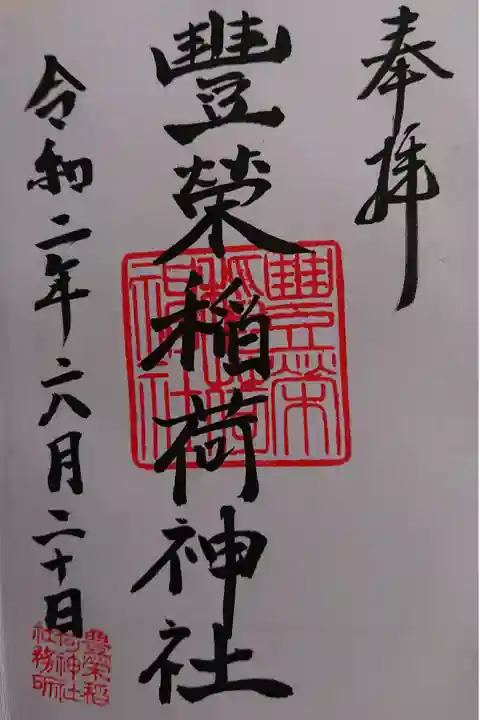 奉拝
豐榮稲荷神社
豐榮稲荷神社
令和二年六月二十日
豊榮稲荷神社社務所